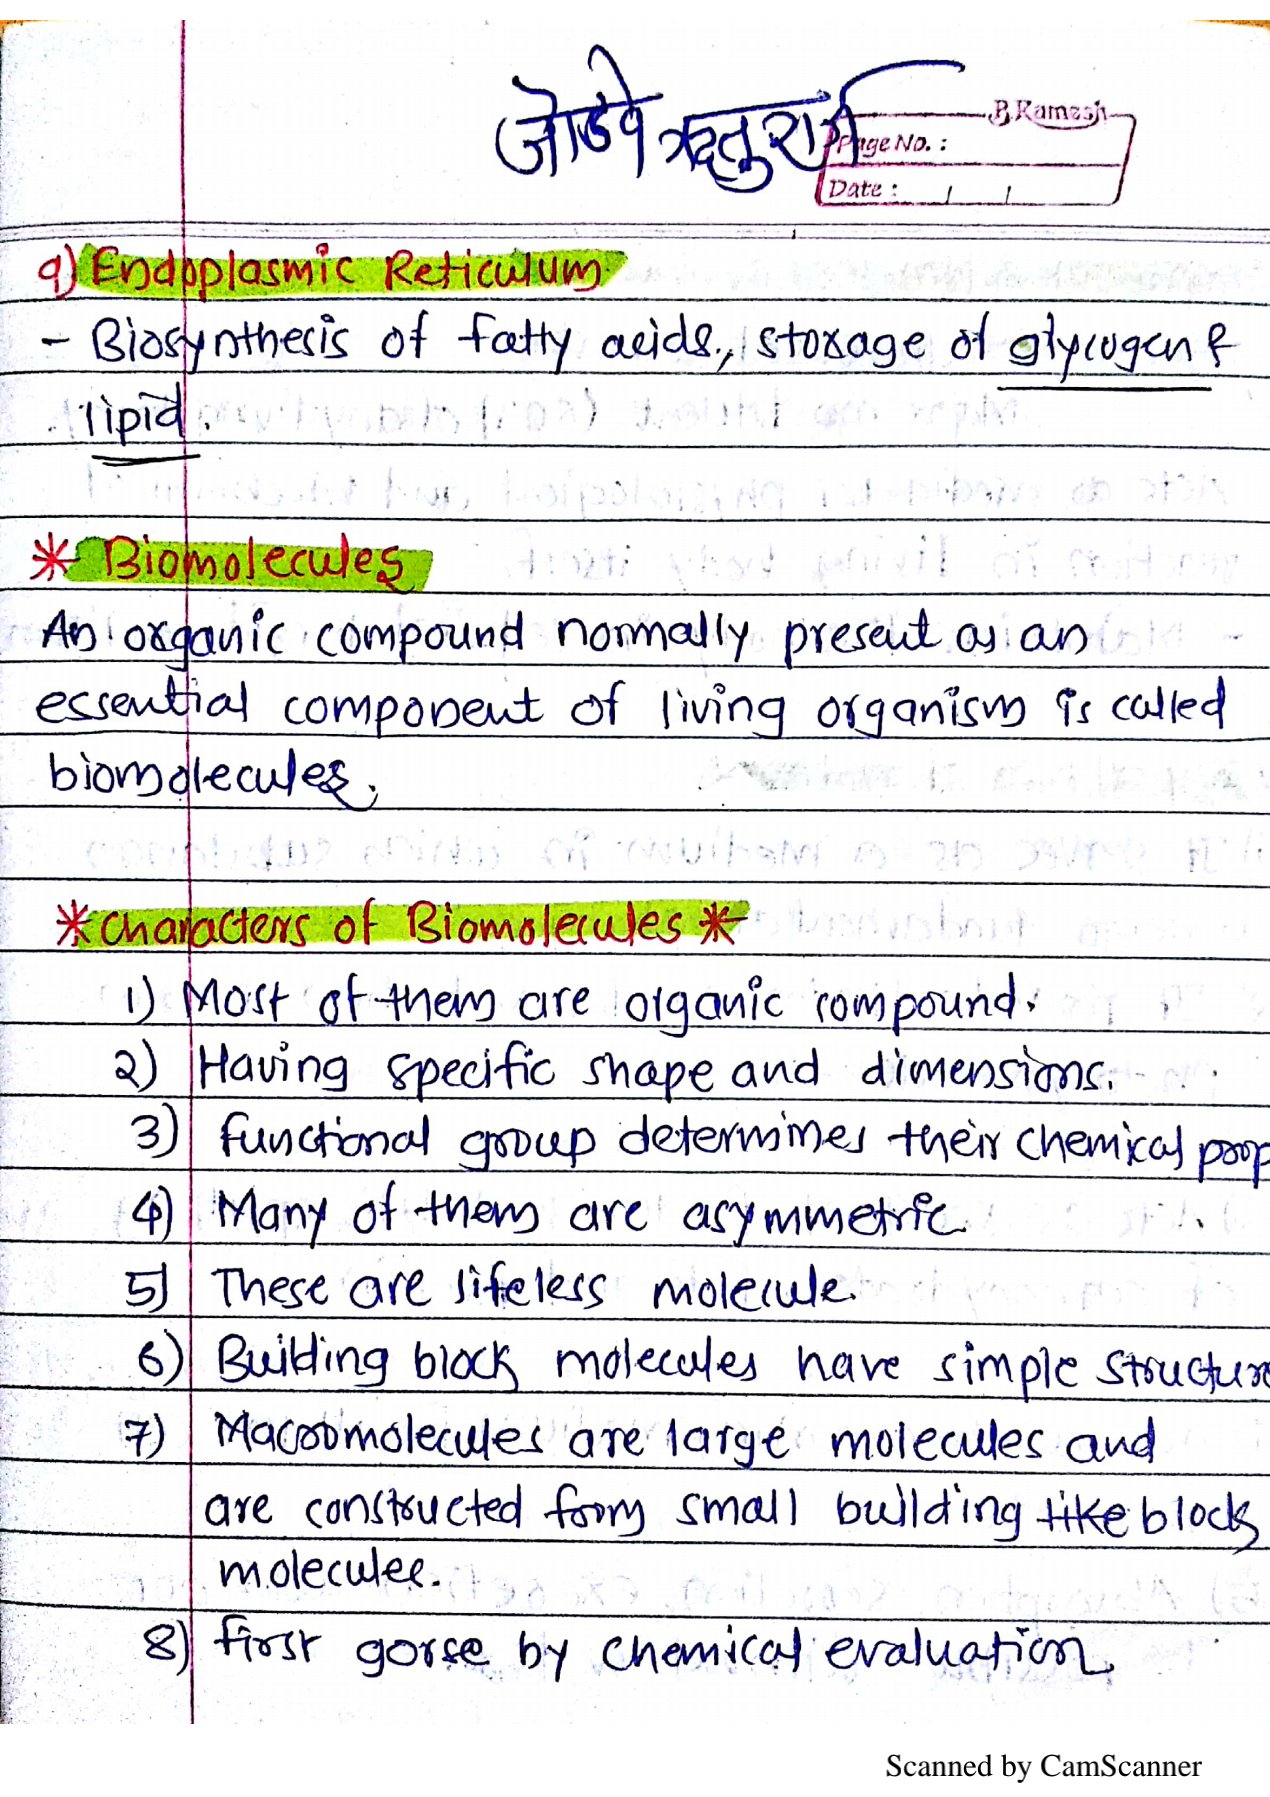 जोडवे ऋतुराज
B.Ramesh
Page No. :
Date : / /
9) Endoplasmic Reticulum
- Biosynthesis of fatty acids., storage of glycogen &
lipid.
* Biomolecules
An organic compound normally present as an
essential component of living organism is called
biomolecules.
* Characters of Biomolecules *
1) Most of them are organic compound.
2) Having specific shape and dimensions.
3) functional group determines their chemical prop
4) Many of them are asymmetric
5) These are lifeless molecule.
6) Building block molecules have simple structure
7) Macromolecules are large molecules and
are constructed form small building like block
molecules.
8) first gorse by chemical evaluation.
Scanned by CamScanner